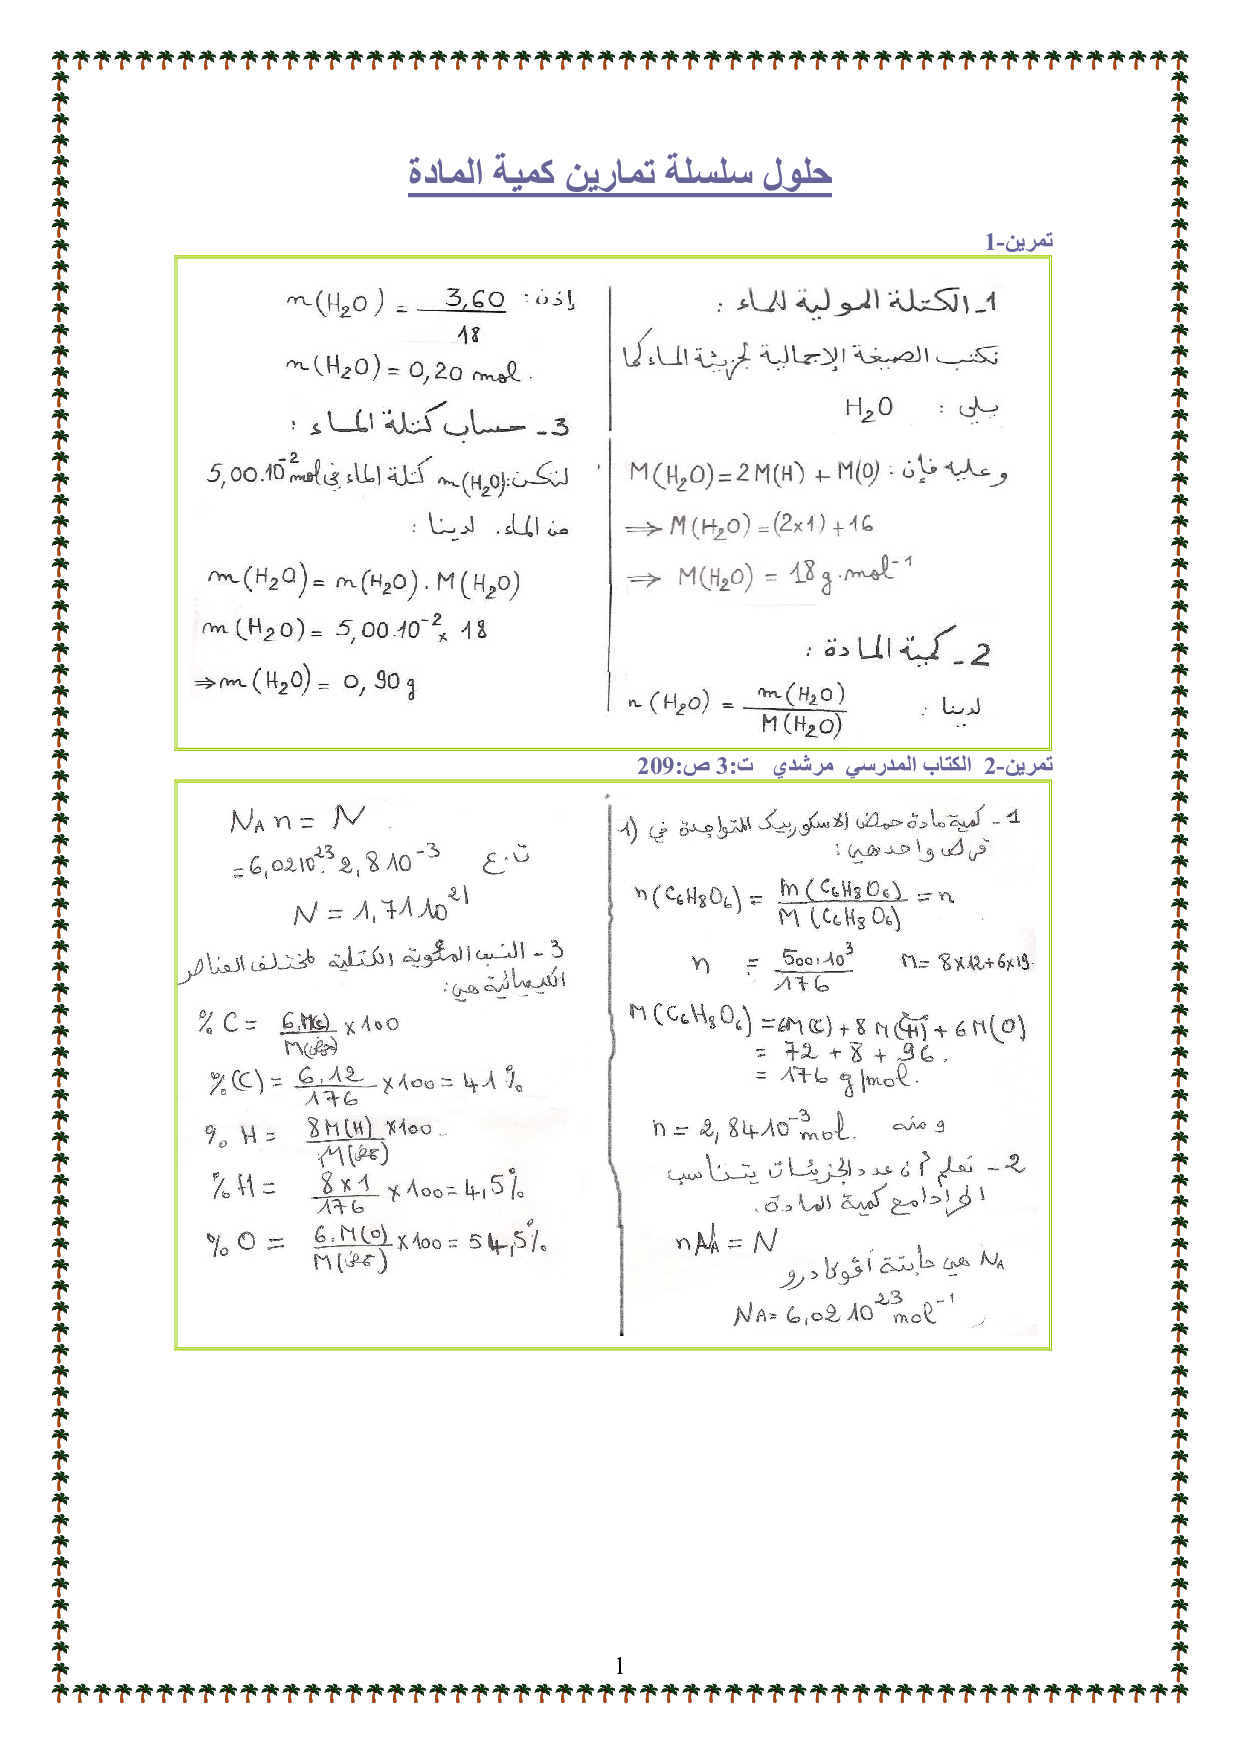 حلول سلسلة تمارين كمية المادة
تمرين-1
1- الكتلة المولية للماء :
نكتب الصيغة الإجمالية لجزيئة الماء كما
يلي : H₂O
وعليه فإن : M(H₂O)=2M(H)+M(O)
⇒ M(H₂O)=(2x1)+16
⇒ M(H₂O) = 18 g.mol⁻¹
2- كمية المادة :
لدينا : n(H₂O) = m(H₂O) / M(H₂O)
إذن : n(H₂O) = 3,60 / 18
n(H₂O) = 0,20 mol.
3- حساب كتلة الماء :
لتكن: m(H₂O) كتلة الماء في 5,00.10⁻² mol
من الماء. لدينا :
m(H₂O) = n(H₂O).M(H₂O)
m(H₂O) = 5,00.10⁻² x 18
⇒ m(H₂O) = 0,90 g
تمرين-2 الكتاب المدرسي مرشدي ت:3 ص:209
1- كمية مادة حمض الاسكوربيك المتواجدة في (1)
قرص واحد هي :
n(C₆H₈O₆) = m(C₆H₈O₆) / M(C₆H₈O₆) = n
n = 500.10³ / 176 M= 8x12+6x19
M(C₆H₈O₆) = 6M(C)+8M(H)+6M(O)
= 72 + 8 + 96.
= 176 g/mol.
ومنه n = 2,84 10⁻³ mol.
2- نعلم أن عدد الجزيئات يتناسب
اطرادا مع كمية المادة.
nNA = N
NA هي ثابتة أفوكادرو
NA= 6,02 10²³ mol⁻¹
NA n = N
ت.ع = 6,02 10²³. 2,8 10⁻³
N = 1,71 10²¹
3- النسب المئوية الكتلية لمختلف العناصر
الكيميائية هي:
% C = 6.M(C) / M x 100
%(C) = 6.12 / 176 x100 = 41%
% H = 8M(H) / M x100
% H = 8x1 / 176 x 100 = 4,5%
% O = 6.M(O) / M x100 = 54,5%
1